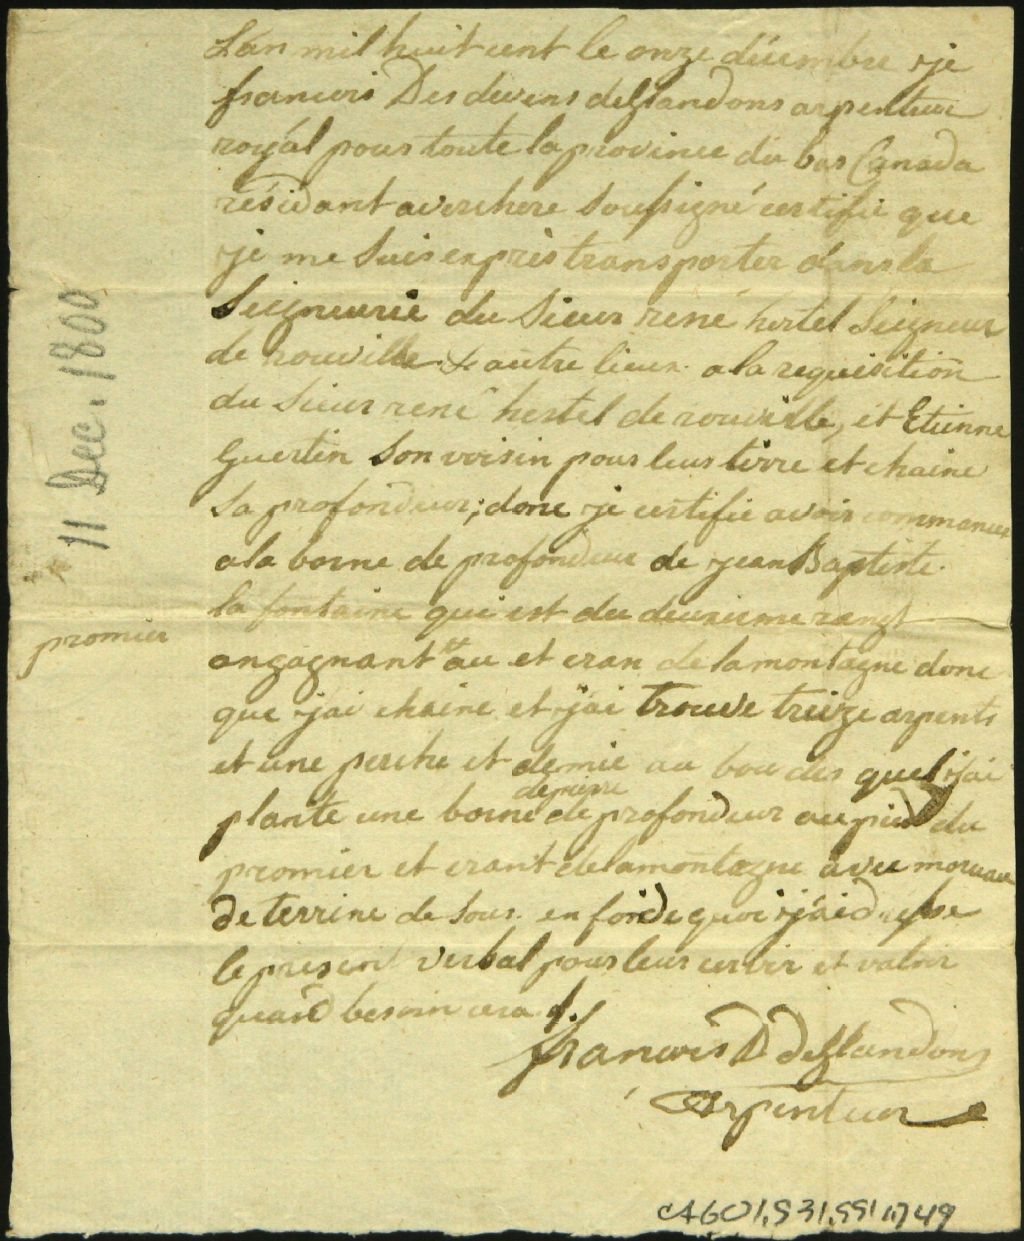 L'an mil huit cent le onze décembre je
francois Des devens deglandons arpenteur
royal pour toute la province du bas Canada
résidant a verchere soussigné certifie que
je me suis exprès transporter dans la
Seigneurie du Sieur rené hertel Seigneur
de rouville & autre lieux a la requisition
du Sieur rené hertel de rouville, et Etienne
Guertin son voisin pour leur tirre et chaine
sa profondeur; donc je certifie avoir commancer
a la borne de profondeur de jean Baptiste
la fontaine qui est du deuxieme rangt
promier
angagnant au et cran de la montagne donc
que j'ai chaine et j'ai trouve treize arpents
et une perche et demie au bou des quel j'ai
plante une borne de pierre de profondeur au pied du
promier et crant de la montagne avec morceau
de terrine de sous en foi de quoi j'ai dresse
le presen verbal pour leur cervir et valoir
quand besoin cera
francois D deglandons
Arpenteur
11 Dec. 1800
CA601,S31,SS1,1749